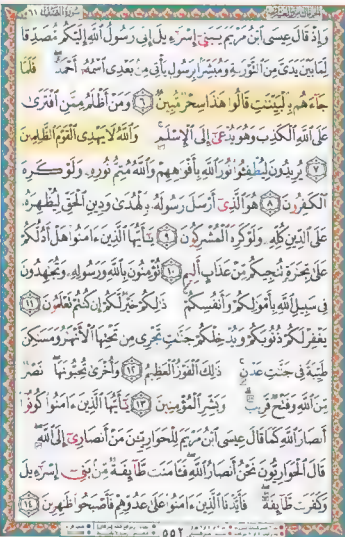 سورة الصف ٦١
وَإِذْ قَالَ عِيسَى ٱبْنُ مَرْيَمَ يَـٰبَنِىٓ إِسْرَٰٓءِيلَ إِنِّى رَسُولُ ٱللَّهِ إِلَيْكُم مُّصَدِّقًا
لِّمَا بَيْنَ يَدَىَّ مِنَ ٱلتَّوْرَىٰةِ وَمُبَشِّرًۢا بِرَسُولٍ يَأْتِى مِنۢ بَعْدِى ٱسْمُهُۥٓ أَحْمَدُ فَلَمَّا
جَآءَهُم بِٱلْبَيِّنَـٰتِ قَالُوا۟ هَـٰذَا سِحْرٌ مُّبِينٌ ٦ وَمَنْ أَظْلَمُ مِمَّنِ ٱفْتَرَىٰ
عَلَى ٱللَّهِ ٱلْكَذِبَ وَهُوَ يُدْعَىٰٓ إِلَى ٱلْإِسْلَـٰمِ وَٱللَّهُ لَا يَهْدِى ٱلْقَوْمَ ٱلظَّـٰلِمِينَ
٧ يُرِيدُونَ لِيُطْفِـُٔوا۟ نُورَ ٱللَّهِ بِأَفْوَٰهِهِمْ وَٱللَّهُ مُتِمُّ نُورِهِۦ وَلَوْ كَرِهَ
ٱلْكَـٰفِرُونَ ٨ هُوَ ٱلَّذِىٓ أَرْسَلَ رَسُولَهُۥ بِٱلْهُدَىٰ وَدِينِ ٱلْحَقِّ لِيُظْهِرَهُۥ
عَلَى ٱلدِّينِ كُلِّهِۦ وَلَوْ كَرِهَ ٱلْمُشْرِكُونَ ٩ يَـٰٓأَيُّهَا ٱلَّذِينَ ءَامَنُوا۟ هَلْ أَدُلُّكُمْ
عَلَىٰ تِجَـٰرَةٍ تُنجِيكُم مِّنْ عَذَابٍ أَلِيمٍ ١٠ تُؤْمِنُونَ بِٱللَّهِ وَرَسُولِهِۦ وَتُجَـٰهِدُونَ
فِى سَبِيلِ ٱللَّهِ بِأَمْوَٰلِكُمْ وَأَنفُسِكُمْ ذَٰلِكُمْ خَيْرٌ لَّكُمْ إِن كُنتُمْ تَعْلَمُونَ ١١
يَغْفِرْ لَكُمْ ذُنُوبَكُمْ وَيُدْخِلْكُمْ جَنَّـٰتٍ تَجْرِى مِن تَحْتِهَا ٱلْأَنْهَـٰرُ وَمَسَـٰكِنَ
طَيِّبَةً فِى جَنَّـٰتِ عَدْنٍ ذَٰلِكَ ٱلْفَوْزُ ٱلْعَظِيمُ ١٢ وَأُخْرَىٰ تُحِبُّونَهَا نَصْرٌ
مِّنَ ٱللَّهِ وَفَتْحٌ قَرِيبٌ وَبَشِّرِ ٱلْمُؤْمِنِينَ ١٣ يَـٰٓأَيُّهَا ٱلَّذِينَ ءَامَنُوا۟ كُونُوٓا۟
أَنصَارَ ٱللَّهِ كَمَا قَالَ عِيسَى ٱبْنُ مَرْيَمَ لِلْحَوَارِيِّـۧنَ مَنْ أَنصَارِىٓ إِلَى ٱللَّهِ
قَالَ ٱلْحَوَارِيُّونَ نَحْنُ أَنصَارُ ٱللَّهِ فَـَٔامَنَت طَّآئِفَةٌ مِّنۢ بَنِىٓ إِسْرَٰٓءِيلَ
وَكَفَرَت طَّآئِفَةٌ فَأَيَّدْنَا ٱلَّذِينَ ءَامَنُوا۟ عَلَىٰ عَدُوِّهِمْ فَأَصْبَحُوا۟ ظَـٰهِرِينَ ١٤
٥٥٢